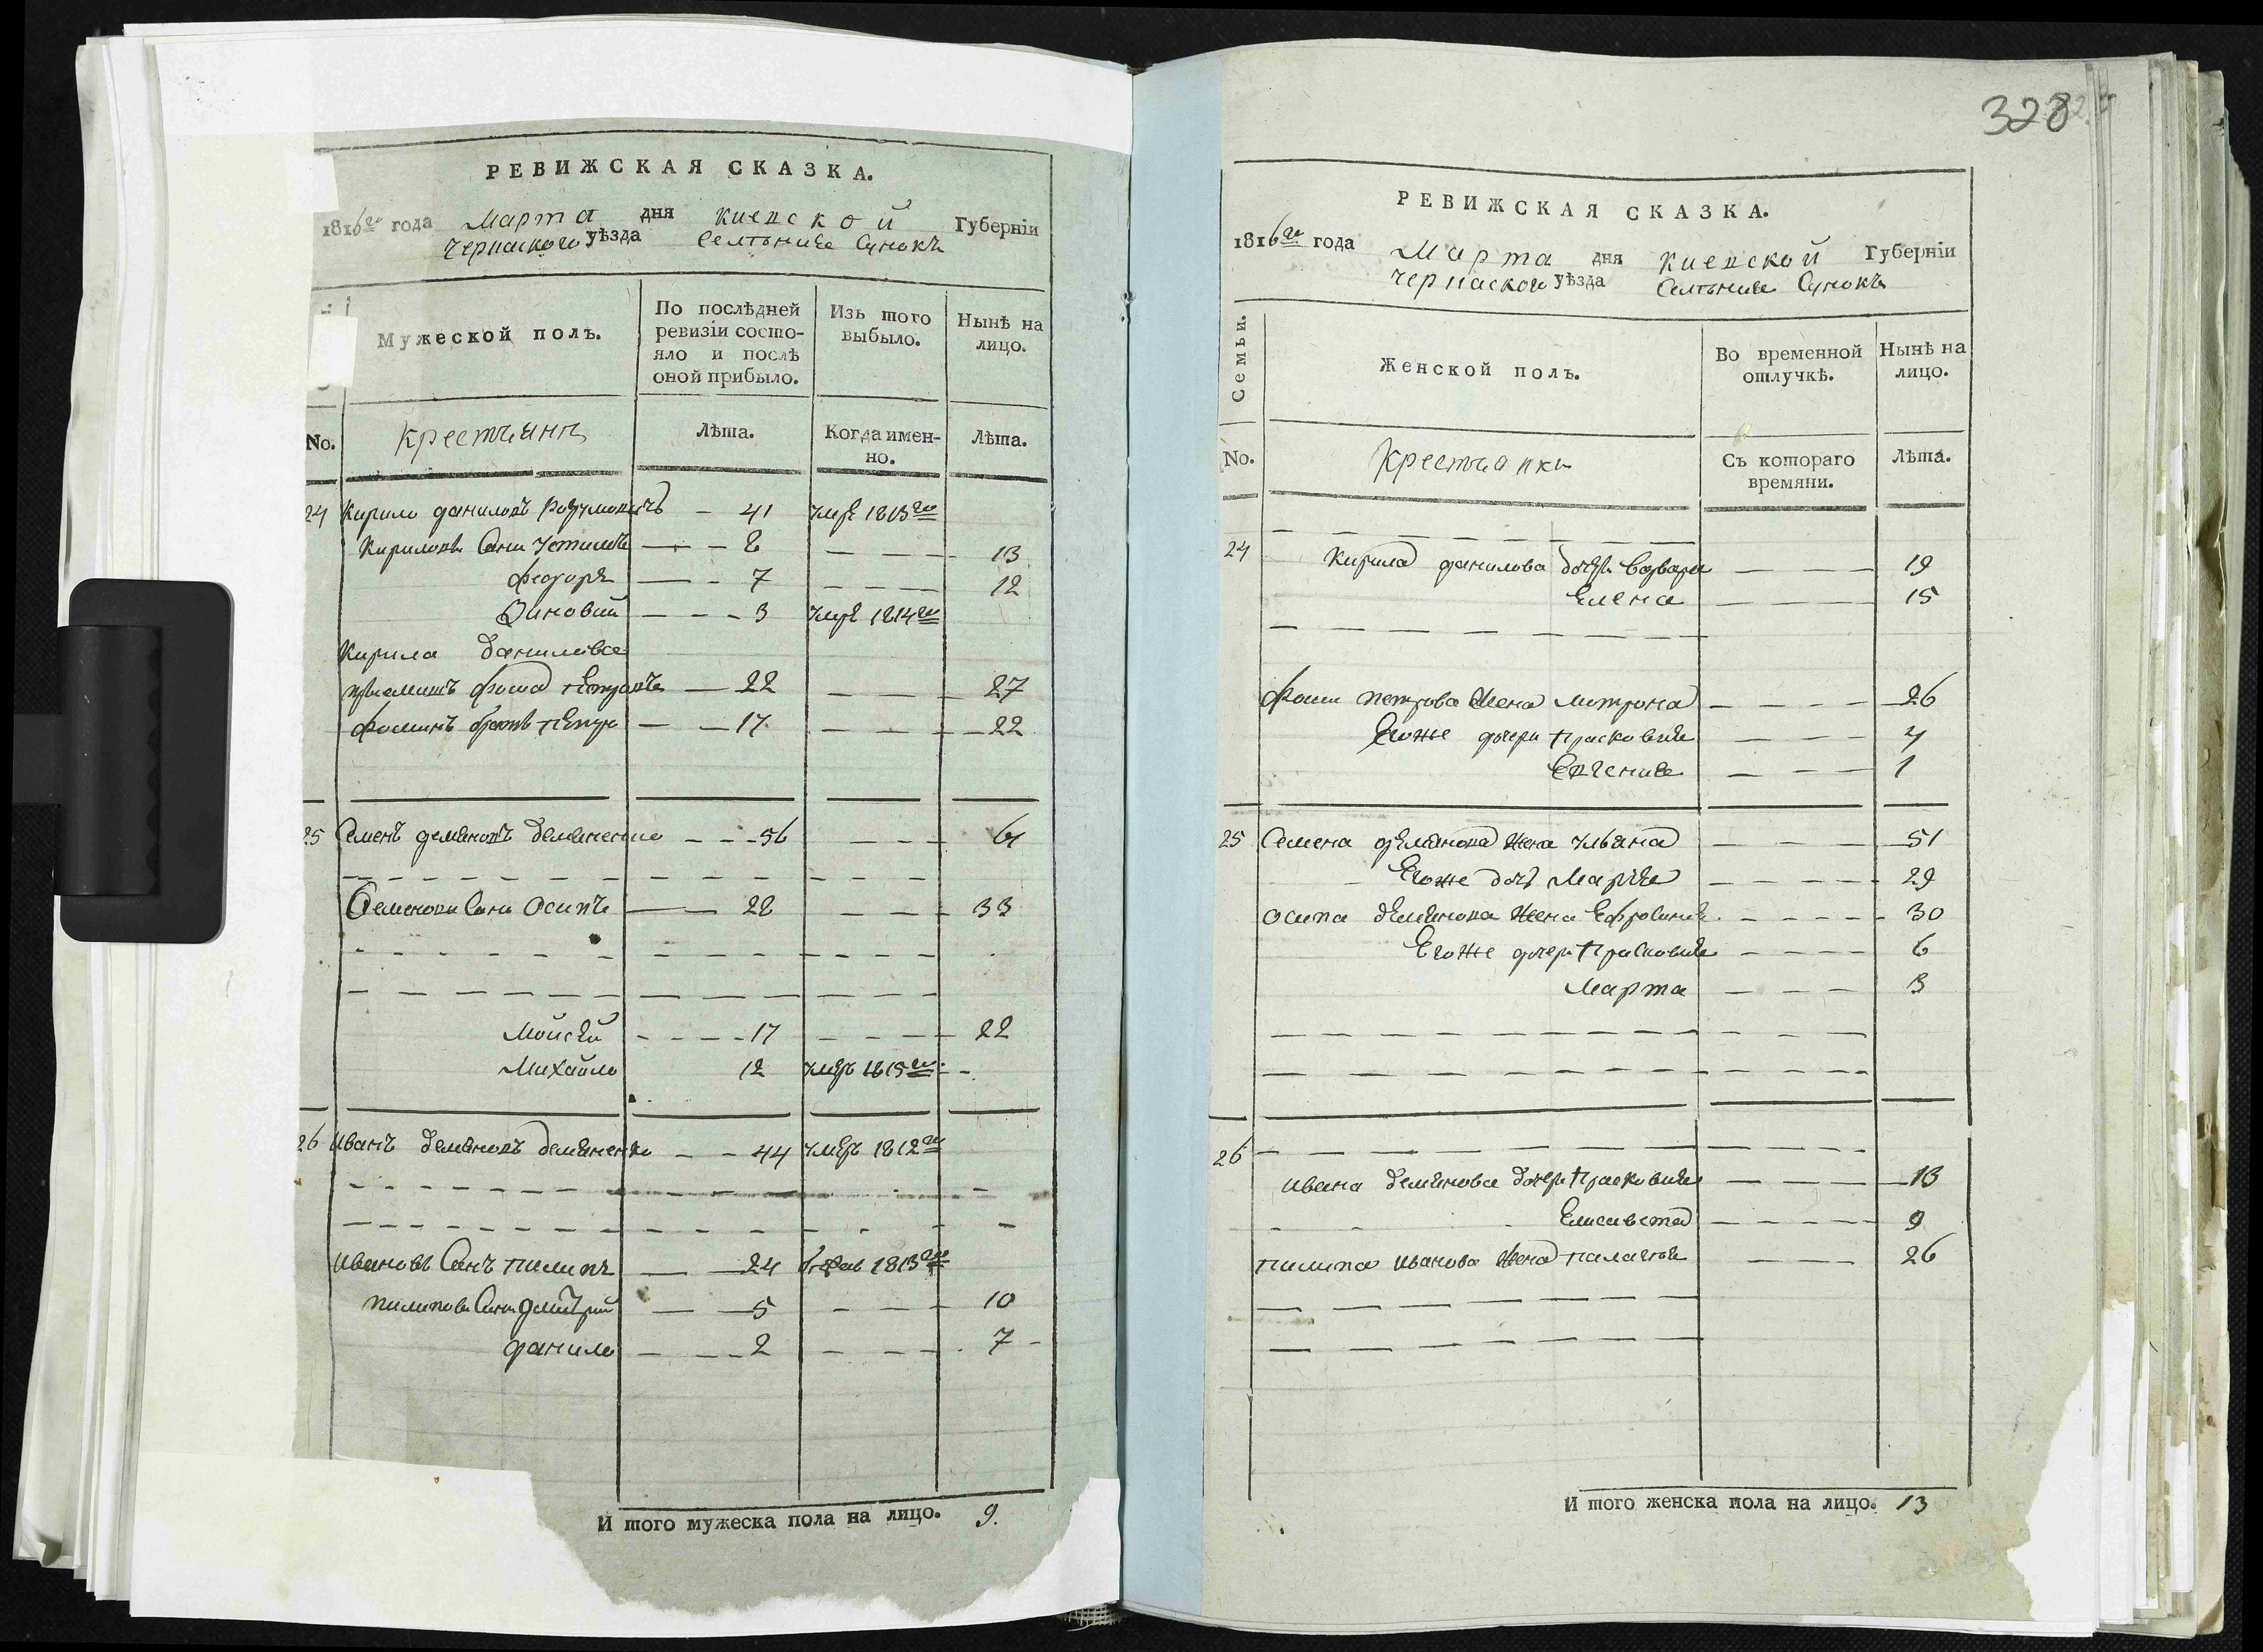 РЕВИЖСКАЯ СКАЗКА.
1816го года Марта дня Киевской Губерніи
Черкаского уѣзда Селѣния Сунокъ
Мужеской полъ.
По послѣдней ревизіи состояло и послѣ оной прибыло.
Изъ того выбыло.
Нынѣ на лицо.
No. Крестьяне Лѣта. Когда именно. Лѣта.
24 Кирило Даниловъ 41 умре 1813го
Кириловы Сини Устимъ 8 13
Федоръ 7 12
Зиновий 3 умре 1814го
Кирила Данилова
Фома Петровъ 22 27
Фоминъ братъ Петро 17 22
25 Семенъ Демяновъ Демяненко 56 61
Семеновы Сини Осипъ 28 33
Мойсей 17 22
Михайло 12 умре 1815го
26 Иванъ Демяновъ Демяненко 44 умре 1812го
Ивановъ Синъ Пилипъ 24 1813го
Пилиповы Сини Дмитрий 5 10
Данило 2 7
И того мужеска пола на лицо. 9.
328
РЕВИЖСКАЯ СКАЗКА.
1816го года Марта дня Киевской Губерніи
Черкаского уѣзда Селѣния Сунокъ
Семьи.
Женской полъ.
Во временной отлучкѣ.
Нынѣ на лицо.
No. Крестьянки Съ котораго времяни. Лѣта.
24 Кирила Данилова дочери Варвара 19
Елена 15
Фоми Петрова жена Митрона 26
Егоже дочери Прасковия 4
Евгения 1
25 Семена Демянова жена Ульяна 51
Егоже дочь Мария 29
Осипа Демянова жена Ефросиния 30
Егоже дочери Прасковия 6
Марта 3
26
Ивана Демянова дочери Прасковия 13
Елисавета 9
Пилипа Иванова жена Палагия 26
И того женска пола на лицо. 13